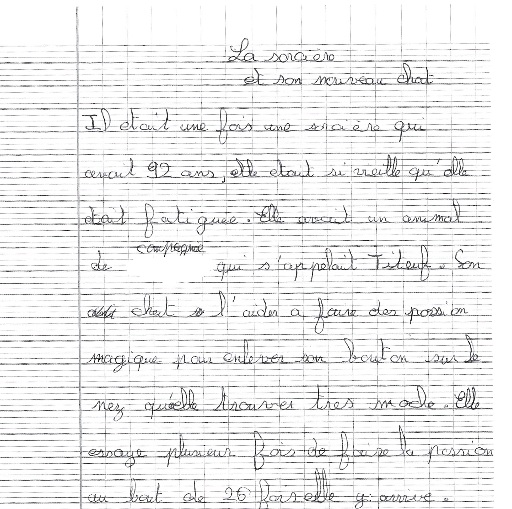 La sorcière
et son nouveau chat
Il était une fois une sorcière qui
avait 92 ans, elle était si vieille qu'elle
était fatiguée. Elle avait un animal
de compagnie qui s'appelait Titeuf. Son
chat l'aider a faire des possion
magique pour enlever son bouton sur le
nez qu'elle trouver tres moche. Elle
essaye plusieur fois de faire la possion
au bout de 26 fois elle y arrive.